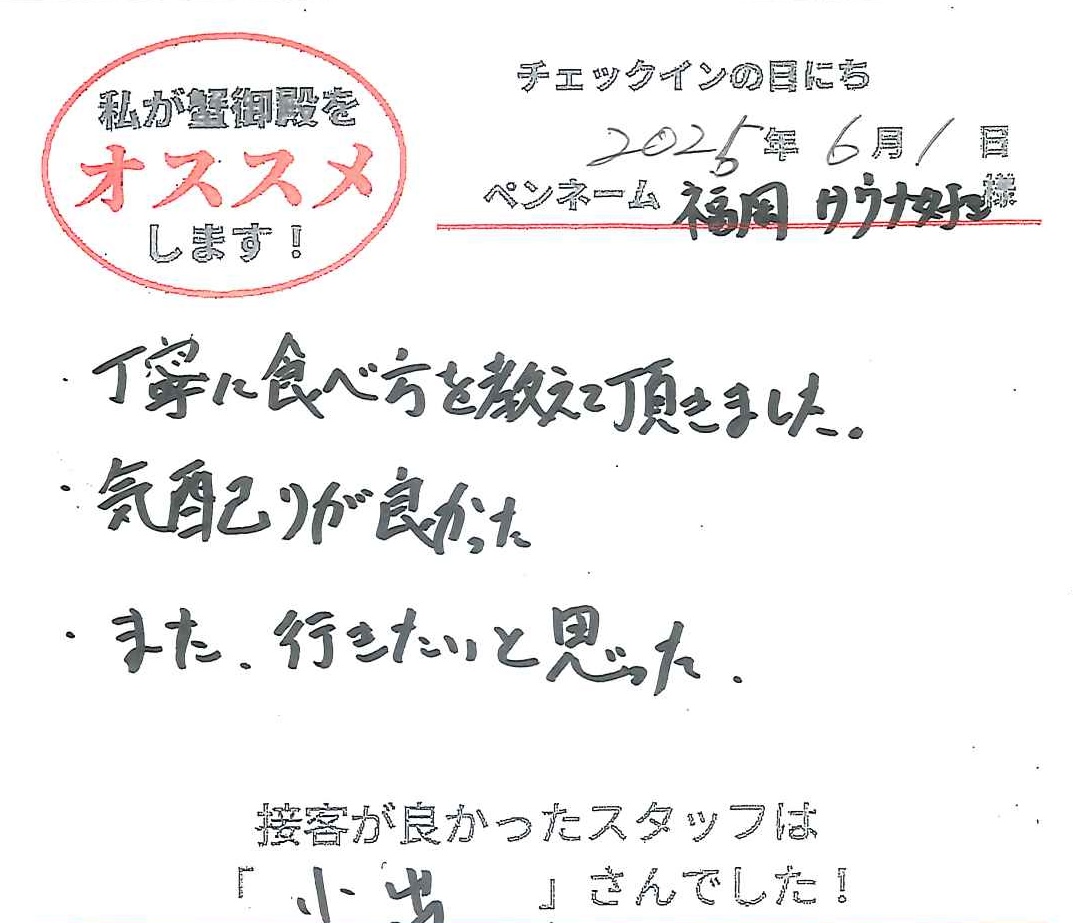 私が蟹御殿を
オススメ
します！
チェックインの日にち
2025年 6月 1日
ペンネーム 福岡 サウナ好き様
・丁寧に食べ方を教えて頂きました。
・気配りが良かった
・また、行きたいと思った。
接客が良かったスタッフは
「小 」さんでした！